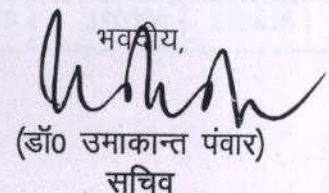 भवदीय,
(डॉ० उमाकान्त पंवार)
सचिव